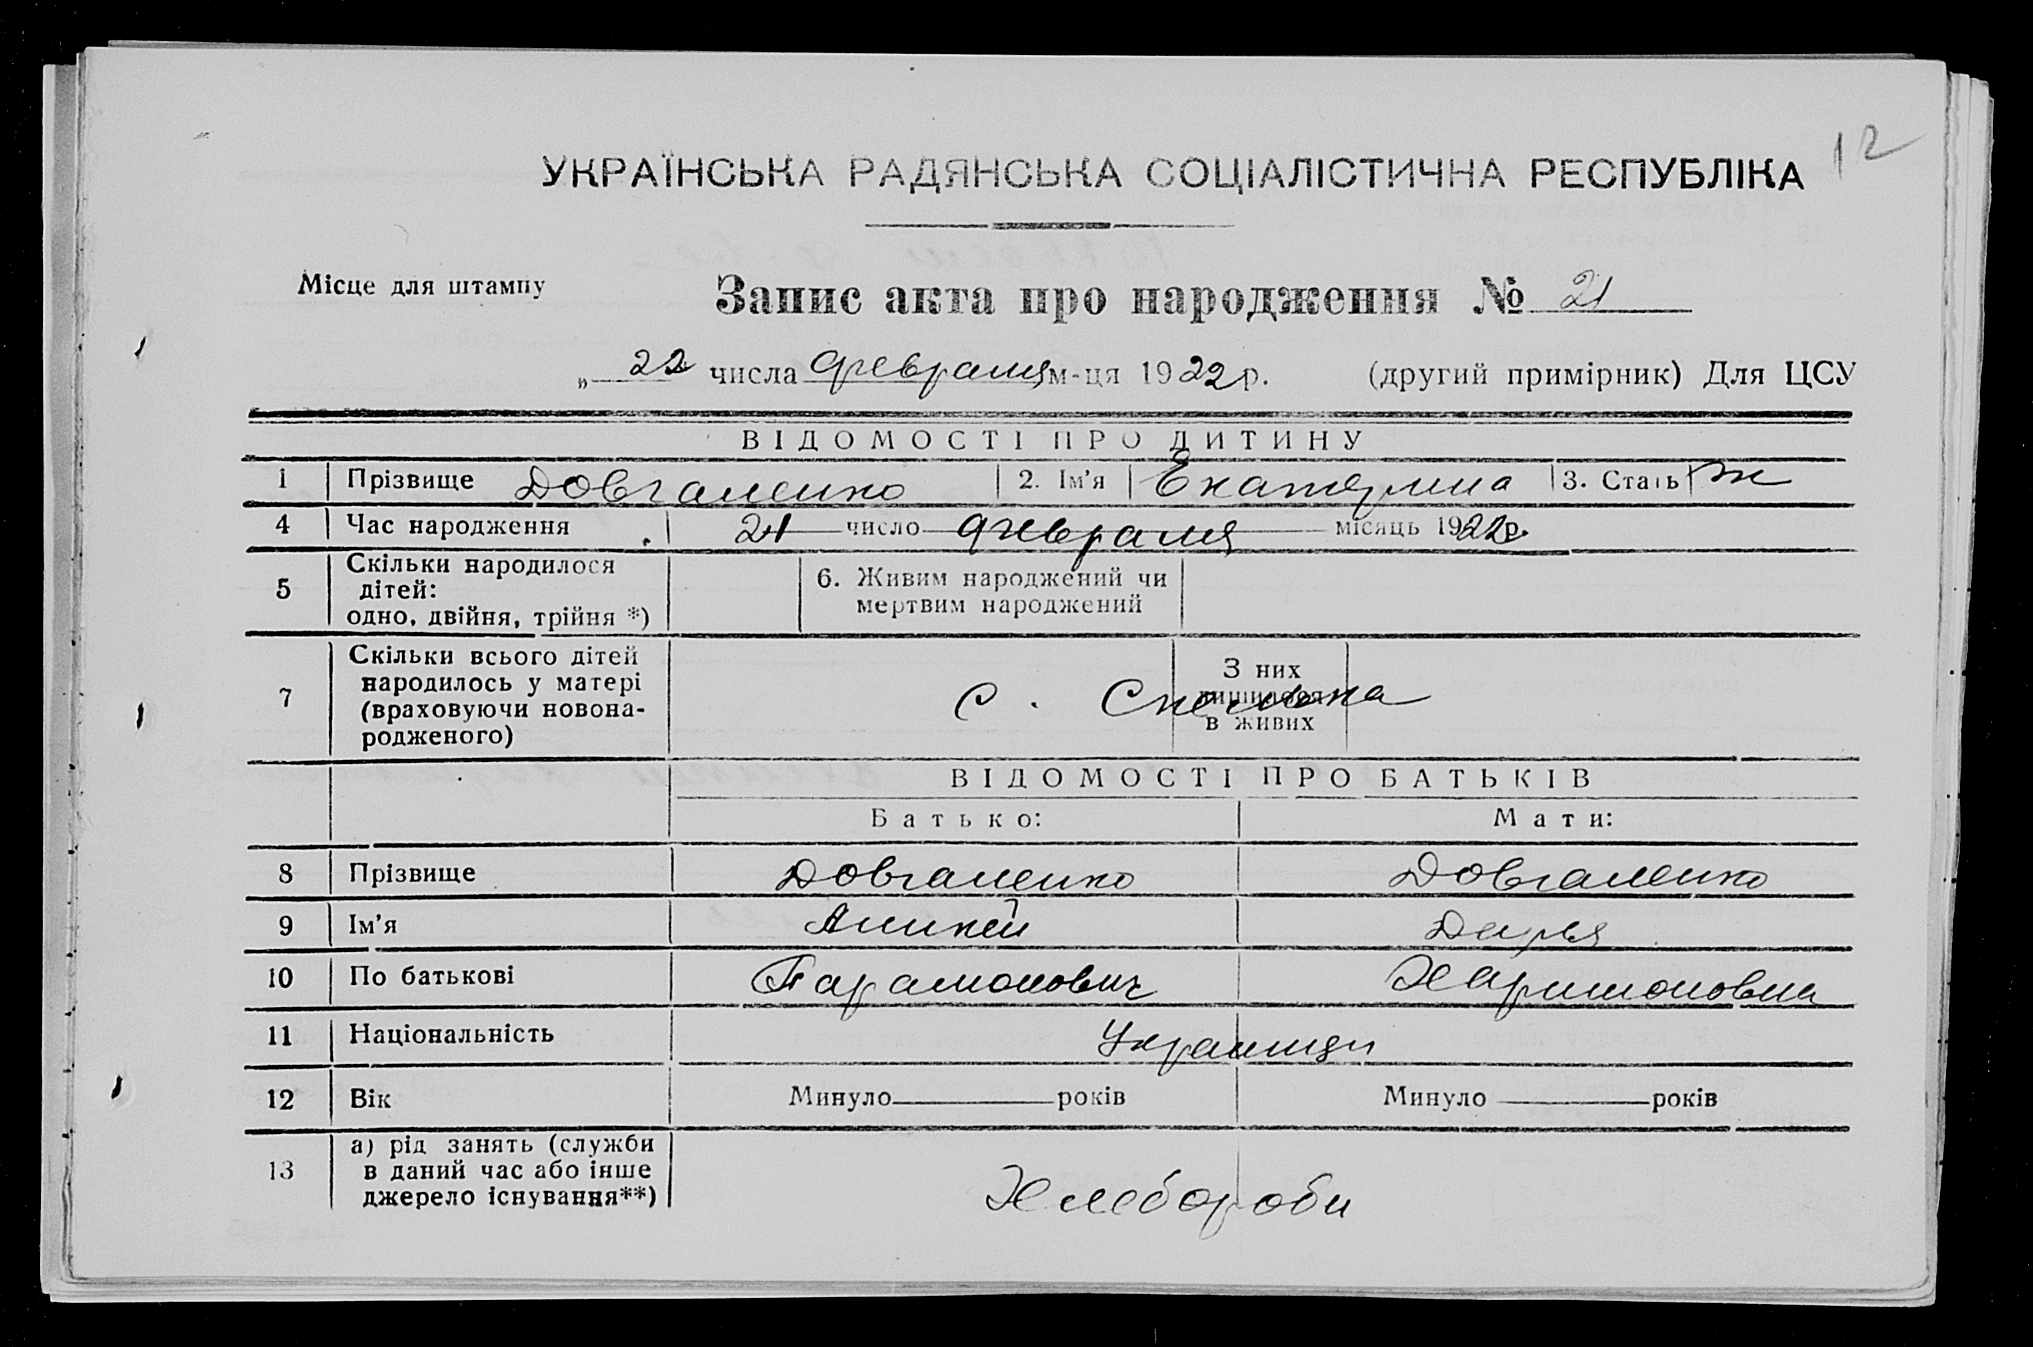 12
УКРАЇНСЬКА РАДЯНСЬКА СОЦІАЛІСТИЧНА РЕСПУБЛІКА
Місце для штампу
Запис акта про народження № 21
„ 22 числа февраля м-ця 1922 р. (другий примірник) Для ЦСУ
ВІДОМОСТІ ПРО ДИТИНУ
1 Прізвище Довгаленко 2. Ім'я Екатерина 3. Стать ж
4 Час народження 21 число февраля місяць 1922р.
5 Скільки народилося дітей: одно, двійня, трійня *) 6. Живим народжений чи мертвим народжений
7 Скільки всього дітей народилось у матері (враховуючи новонародженого) З них лишилося в живих
с.
ВІДОМОСТІ ПРО БАТЬКІВ
Батько: Мати:
8 Прізвище Довгаленко Довгаленко
9 Ім'я Аникей Дарья
10 По батькові Парамонович Харитоновна
11 Національність Украинцы
12 Вік Минуло років Минуло років
13 а) рід занять (служби в даний час або інше джерело існування**) Хлебороби